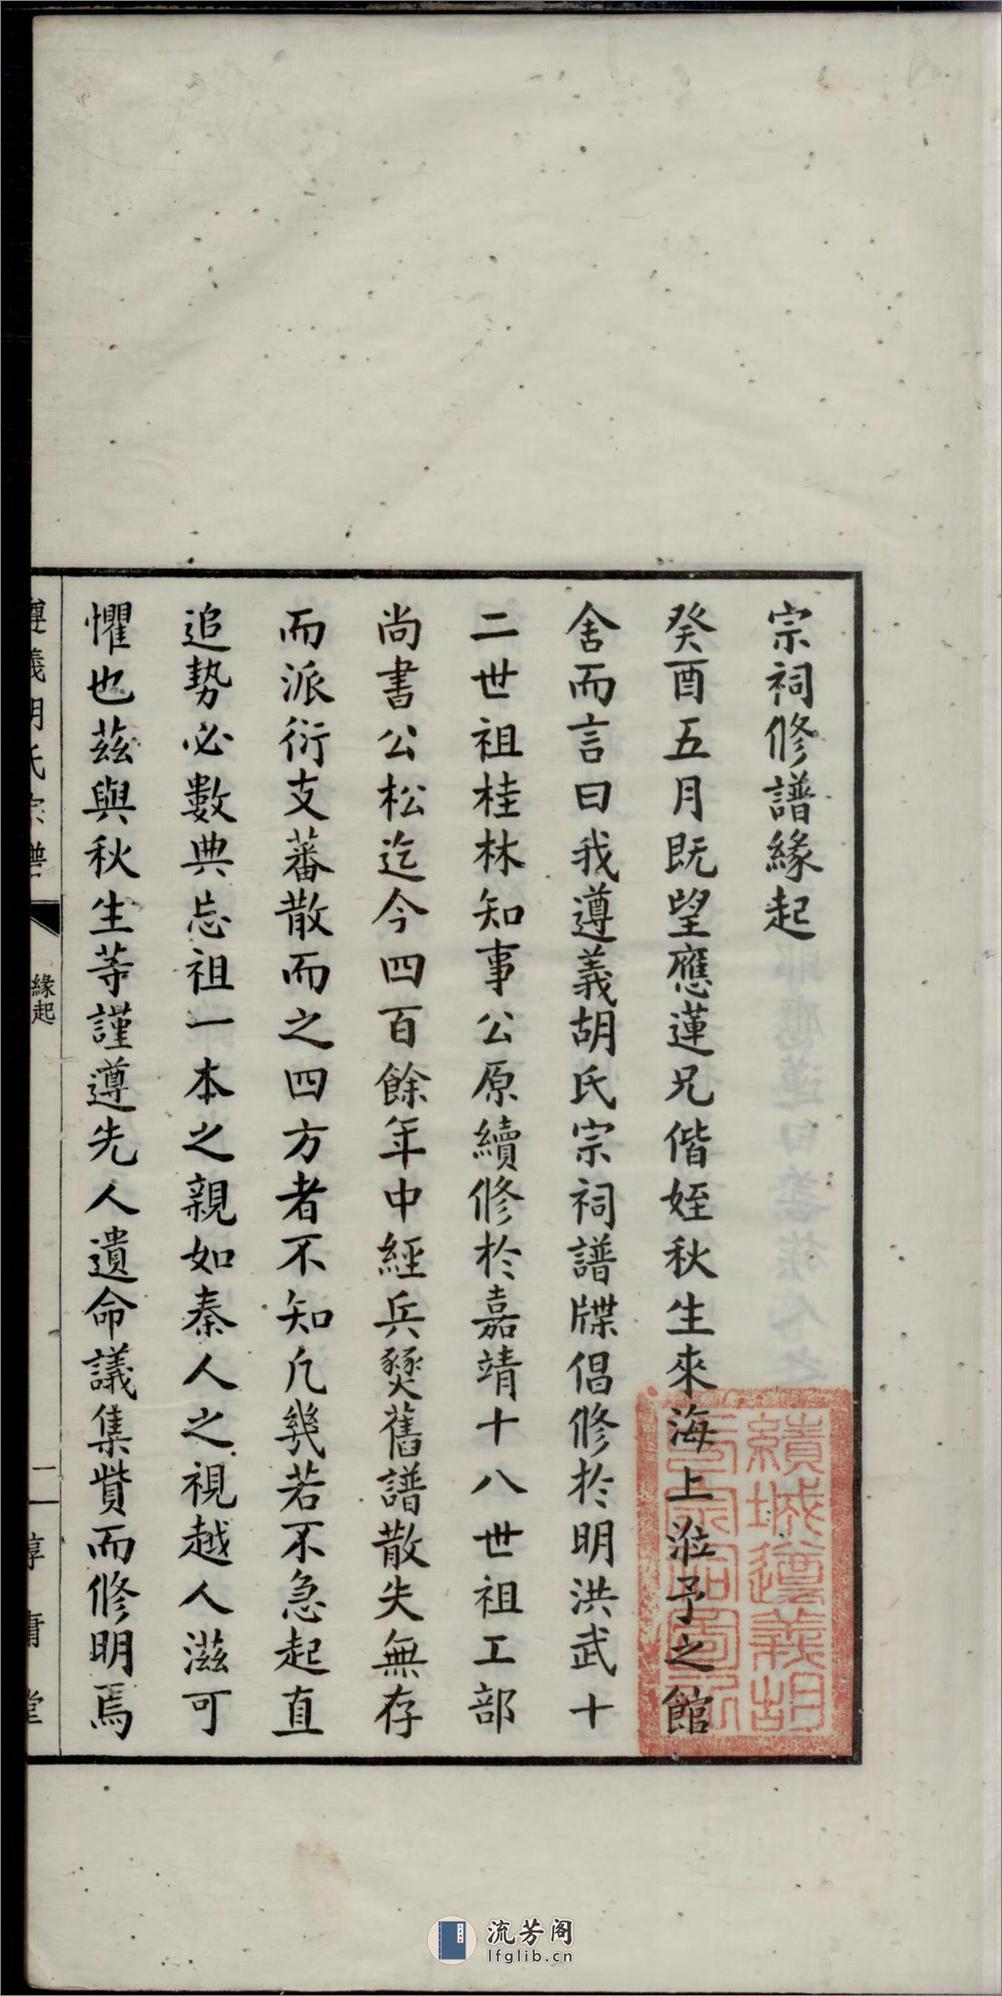 宗祠修譜緣起
癸酉五月既望應蓮兄偕姪秋生來海上涖予之館
舍而言曰我遵義胡氏宗祠譜牒倡修於明洪武十
二世祖桂林知事公原續修於嘉靖十八世祖工部
尚書公松迄今四百餘年中經兵燹舊譜散失無存
而派衍支蕃散而之四方者不知凡幾若不急起直
追勢必數典忘祖一本之親如秦人之視越人滋可
懼也茲與秋生等謹遵先人遺命議集貲而修明焉
遵義胡氏宗譜
緣起
績城遵義胡
流芳阁
lfglib.cn